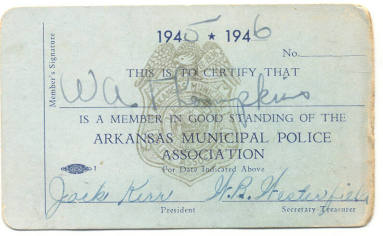 1945 ★ 1946
No.
Member's Signature
THIS IS TO CERTIFY THAT
IS A MEMBER IN GOOD STANDING OF THE
ARKANSAS MUNICIPAL POLICE
ASSOCIATION
For Date Indicated Above
Jack Kerr W.R. Westerfield
President Secretary-Treasurer